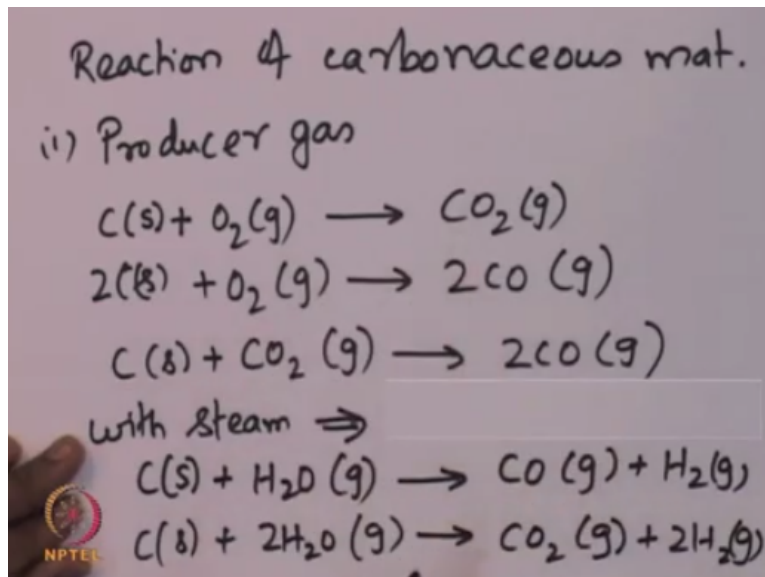 Reaction of carbonaceous mat.
ii) Producer gas
C(s) + O₂(g) ⟶ CO₂(g)
2C(s) + O₂(g) ⟶ 2CO(g)
C(s) + CO₂(g) ⟶ 2CO(g)
with steam ⇒
C(s) + H₂O(g) ⟶ CO(g) + H₂(g)
C(s) + 2H₂O(g) ⟶ CO₂(g) + 2H₂(g)
NPTEL